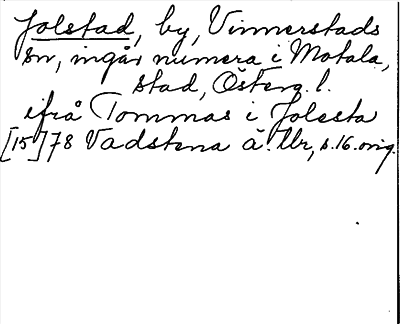 Jolstad, by, Vinnerstads
sn, ingår numera i Motala,
stad, Österg. l.
ifrå Tommas i Jolesta
[15]78 Vadstena ä. tb, s.16. orig.